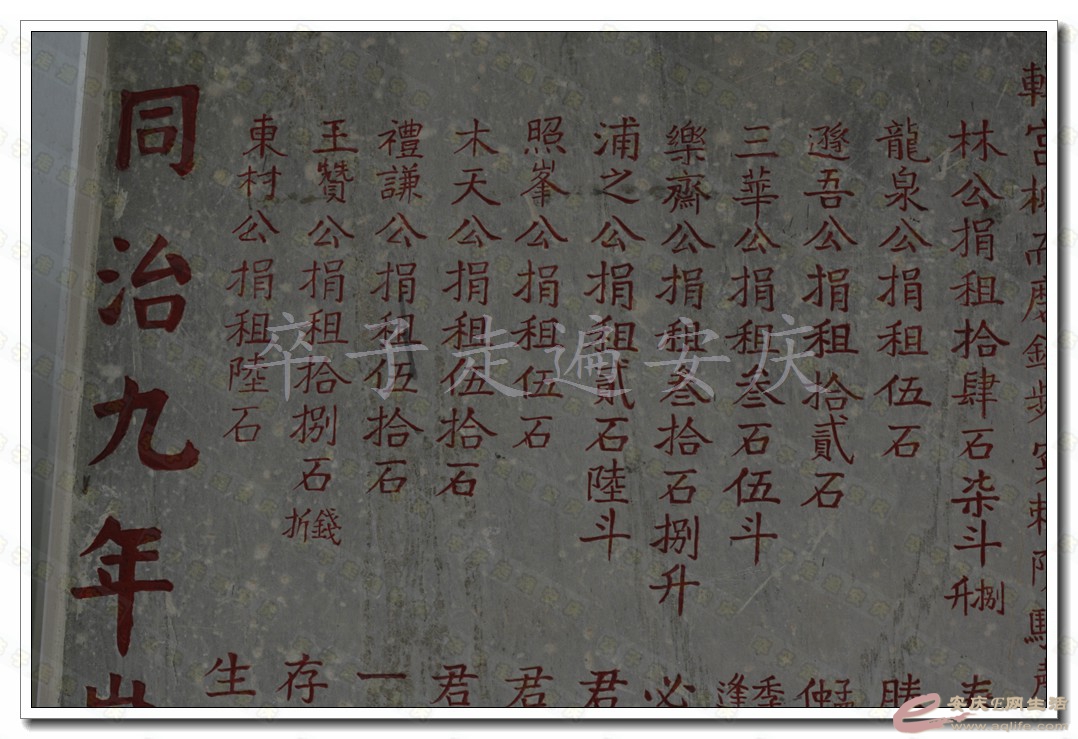 林公捐租拾肆石柒斗捌升
龍泉公捐租伍石
遜吾公捐租拾貳石
三華公捐租叁石伍斗
樂齋公捐租叁拾石捌升
浦之公捐租貳石陸斗
照峯公捐租伍石
木天公捐租伍拾石
禮謙公捐租伍拾石
王贊公捐租拾捌石錢折
東村公捐租陸石
季逢
必
君
君
君
一
存
生
同治九年
卒子走遍安庆
安庆E网生活
www.aqlife.com